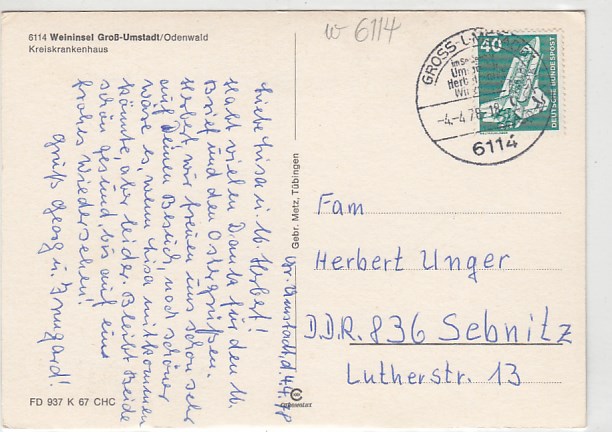 6114 Weininsel Groß-Umstadt/Odenwald
Kreiskrankenhaus
W 6114
GROSS-UMSTADT
Um
Herb
-4.-4.78-18
6114
40
DEUTSCHE BUNDESPOST
Gr. Umstadt, d. 4.4.78
Liebe Lisa u. lb. Herbert!
Habt vielen Dank für den lb.
Brief und den Ostergrüßen.
Herbert, wir freuen uns schon sehr
auf Deinen Besuch, noch schöner
wäre es, wenn Lisa mitkommen
könnte, aber leider. Bleibt Beide
schön gesund, bis auf ein
frohes Wiedersehen!
Gruß Georg u. Irmgard!
Gebr. Metz, Tübingen
Fam
Herbert Unger
D.D.R. 836 Sebnitz
Lutherstr. 13
FD 937 K 67 CHC